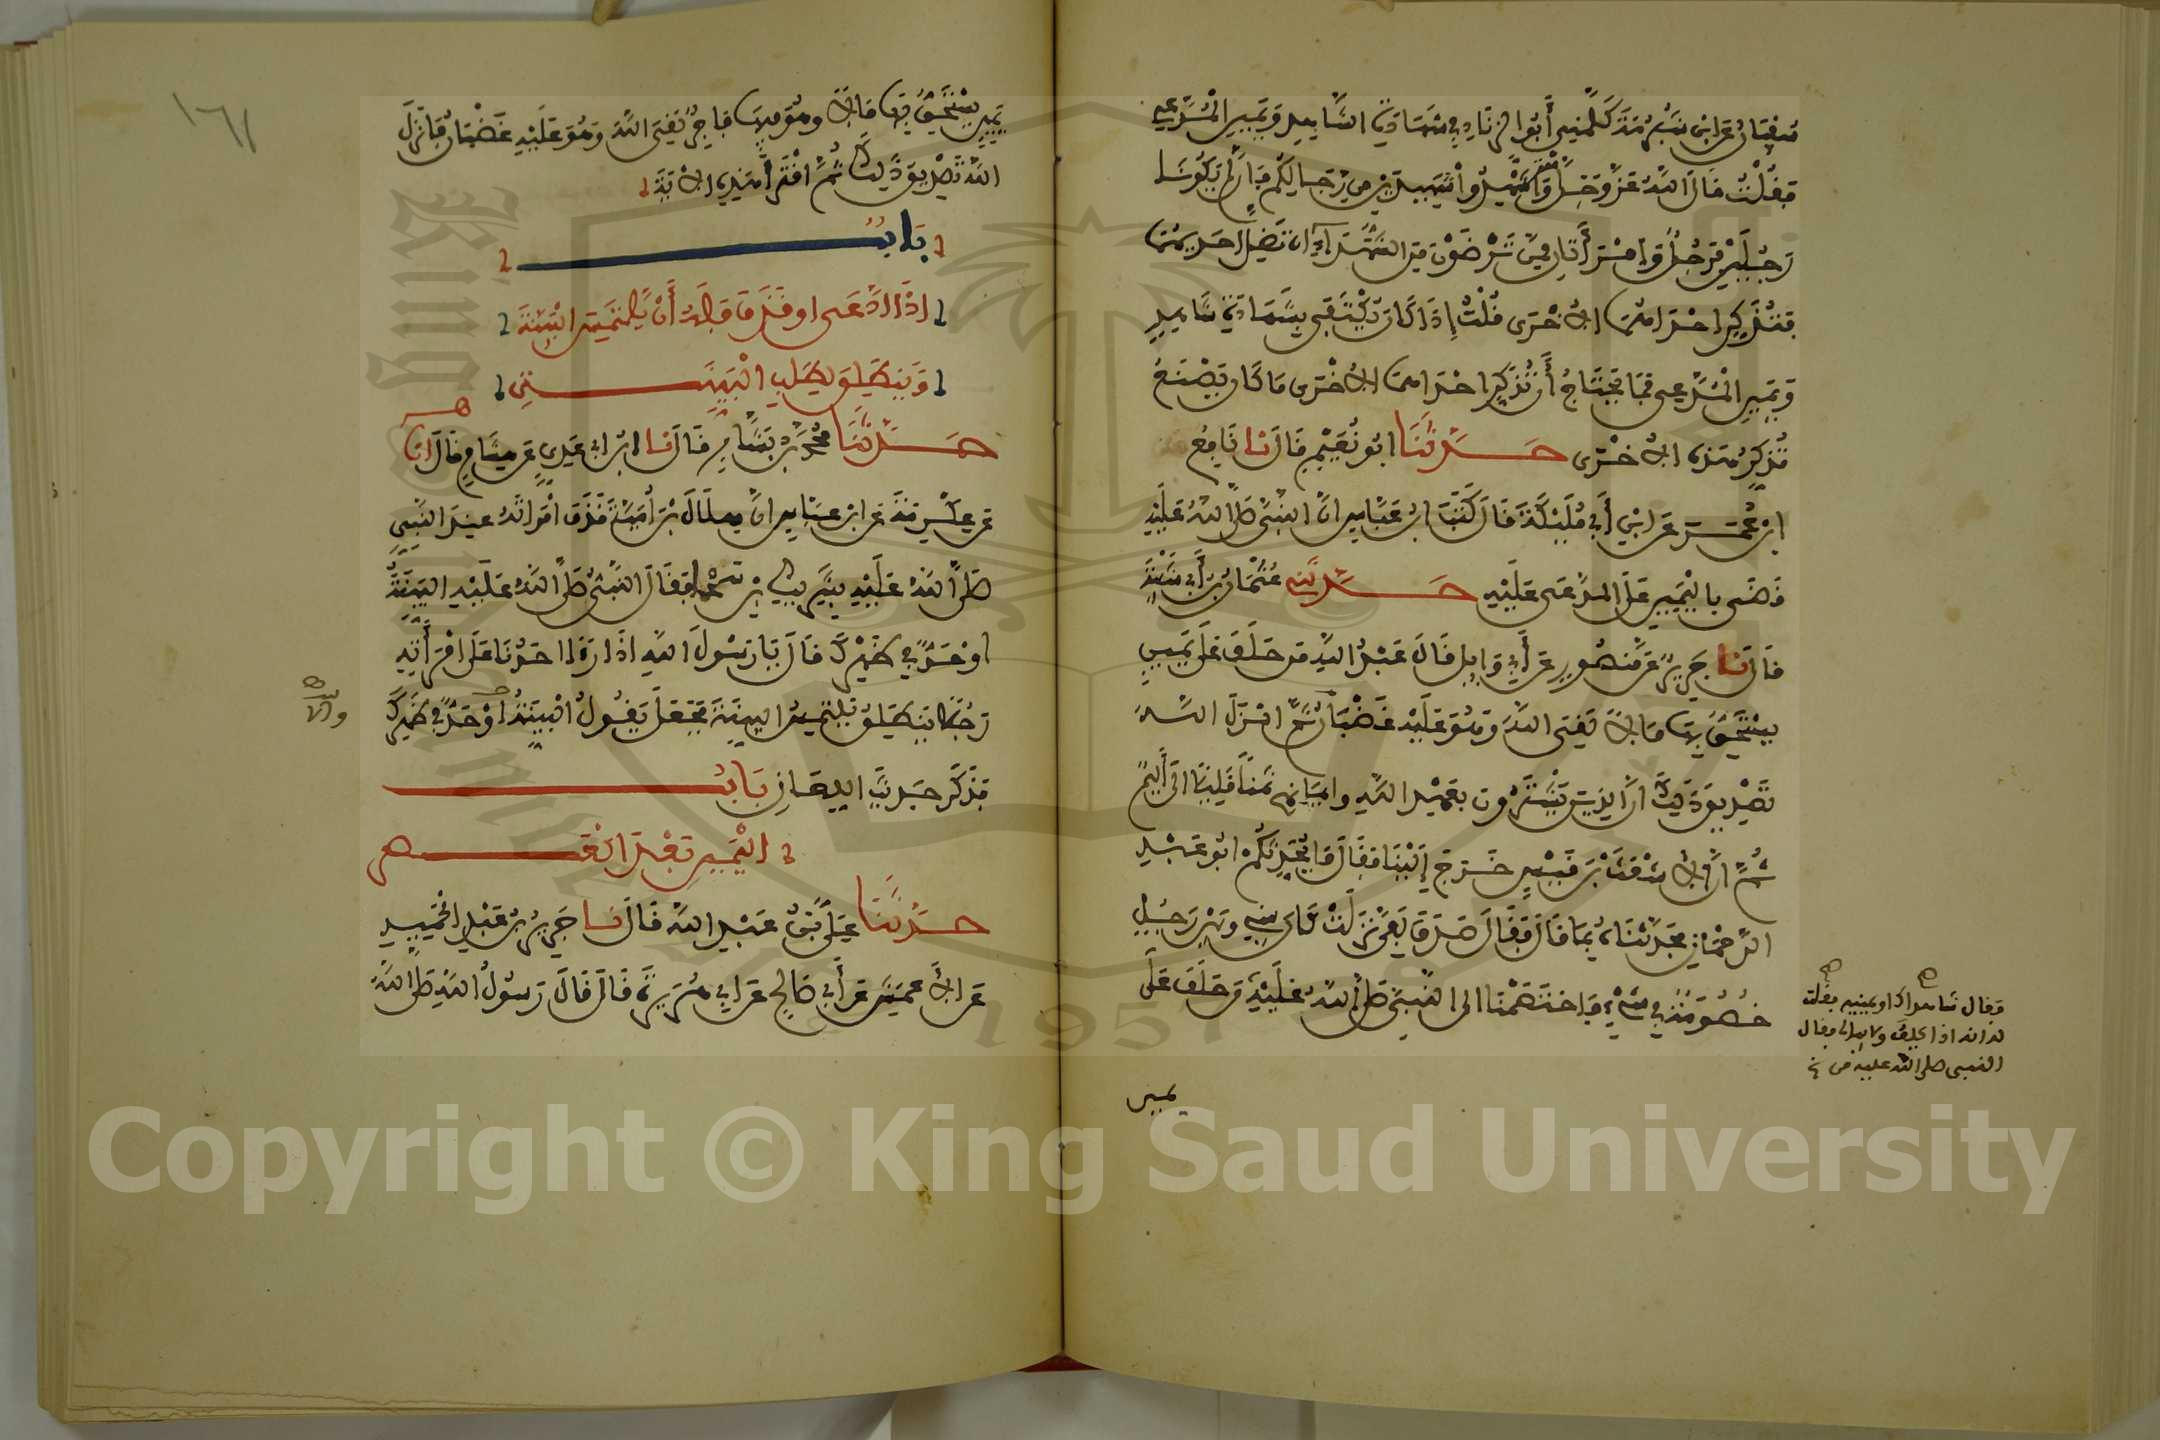 سُفْيَانُ عَنِ ابْنِ شُبْرُمَةَ كَلَّمَنِي أَبُو الزِّنَادِ فِي شَهَادَةِ الشَّاهِدِ وَيَمِينِ الْمُدَّعِي
فَقُلْتُ قَالَ اللَّهُ عَزَّ وَجَلَّ وَاسْتَشْهِدُوا شَهِيدَيْنِ مِنْ رِجَالِكُمْ فَإِنْ لَمْ يَكُونَا
رَجُلَيْنِ فَرَجُلٌ وَامْرَأَتَانِ مِمَّنْ تَرْضَوْنَ مِنَ الشُّهَدَاءِ أَنْ تَضِلَّ إِحْدَاهُمَا
فَتُذَكِّرَ إِحْدَاهُمَا الْأُخْرَى قُلْتُ إِذَا كَانَ يُكْتَفَى بِشَهَادَةِ شَاهِدٍ
وَيَمِينِ الْمُدَّعِي فَمَا يَحْتَاجُ أَنْ تُذَكِّرَ إِحْدَاهُمَا الْأُخْرَى مَا كَانَ يَصْنَعُ
بِذِكْرِ هَذِهِ الْأُخْرَى حَدَّثَنَا أَبُو نُعَيْمٍ قَالَ نَا نَافِعُ
ابْنُ عُمَرَ عَنِ ابْنِ أَبِي مُلَيْكَةَ قَالَ كَتَبَ ابْنُ عَبَّاسٍ أَنَّ النَّبِيَّ صَلَّى اللَّهُ عَلَيْهِ
قَضَى بِالْيَمِينِ عَلَى الْمُدَّعَى عَلَيْهِ حَدَّثَنِي عُثْمَانُ بْنُ أَبِي شَيْبَةَ
قَالَ نَا جَرِيرٌ عَنْ مَنْصُورٍ عَنْ أَبِي وَائِلٍ قَالَ عَبْدُ اللَّهِ مَنْ حَلَفَ عَلَى يَمِينٍ
يَسْتَحِقُّ بِهَا مَالًا لَقِيَ اللَّهَ وَهُوَ عَلَيْهِ غَضْبَانُ ثُمَّ أَنْزَلَ اللَّهُ
تَصْدِيقَ ذَلِكَ إِنَّ الَّذِينَ يَشْتَرُونَ بِعَهْدِ اللَّهِ وَأَيْمَانِهِمْ ثَمَنًا قَلِيلًا إِلَى أَلِيمٌ
ثُمَّ إِنَّ الْأَشْعَثَ بْنَ قَيْسٍ خَرَجَ إِلَيْنَا فَقَالَ مَا يُحَدِّثُكُمْ أَبُو عَبْدِ
الرَّحْمَنِ فَحَدَّثْنَاهُ بِمَا قَالَ فَقَالَ صَدَقَ لَفِيَّ نَزَلَتْ كَانَ بَيْنِي وَبَيْنَ رَجُلٍ
خُصُومَةٌ فِي شَيْءٍ فَاخْتَصَمْنَا إِلَى النَّبِيِّ صَلَّى اللَّهُ عَلَيْهِ مَنْ حَلَفَ عَلَى
فقال شاهداك او يمينه فقلت
له انه اذا يحلف ولا يبالي فقال
النبي صلى الله عليه من
يمين
١٦١
يَمِينٍ يَسْتَحِقُّ بِهَا مَالًا وَهُوَ فِيهَا فَاجِرٌ لَقِيَ اللَّهَ وَهُوَ عَلَيْهِ غَضْبَانُ فَأَنْزَلَ
اللَّهُ تَصْدِيقَ ذَلِكَ ثُمَّ اقْتَرَأَ هَذِهِ الْآيَةَ
بَابٌ
إِذَا ادَّعَى أَوْ قَذَفَ فَلَهُ أَنْ يَلْتَمِسَ الْبَيِّنَةَ
وَيَنْطَلِقَ لِطَلَبِ الْبَيِّنَةِ
حَدَّثَنَا مُحَمَّدُ بْنُ بَشَّارٍ قَالَ نَا ابْنُ أَبِي عَدِيٍّ عَنْ هِشَامٍ قَالَ نَا
عَنْ عِكْرِمَةَ عَنِ ابْنِ عَبَّاسٍ أَنَّ هِلَالَ بْنَ أُمَيَّةَ قَذَفَ امْرَأَتَهُ عِنْدَ النَّبِيِّ
صَلَّى اللَّهُ عَلَيْهِ بِشَرِيكِ بْنِ سَحْمَاءَ فَقَالَ النَّبِيُّ صَلَّى اللَّهُ عَلَيْهِ الْبَيِّنَةُ
أَوْ حَدٌّ فِي ظَهْرِكَ قَالَ يَا رَسُولَ اللَّهِ إِذَا رَأَى أَحَدُنَا عَلَى امْرَأَتِهِ
رَجُلًا يَنْطَلِقُ يَلْتَمِسُ الْبَيِّنَةَ فَجَعَلَ يَقُولُ الْبَيِّنَةُ أَوْ حَدٌّ فِي ظَهْرِكَ
والا
فَذَكَرَ حَدِيثَ اللِّعَانِ بَابُ
الْيَمِينِ بَعْدَ الْعَصْرِ
حَدَّثَنَا عَلِيُّ بْنُ عَبْدِ اللَّهِ قَالَ نَا جَرِيرُ بْنُ عَبْدِ الْحَمِيدِ
عَنِ الْأَعْمَشِ عَنْ أَبِي صَالِحٍ عَنْ أَبِي هُرَيْرَةَ قَالَ قَالَ رَسُولُ اللَّهِ صَلَّى اللَّهُ
King Saud University
1957
Copyright © King Saud University